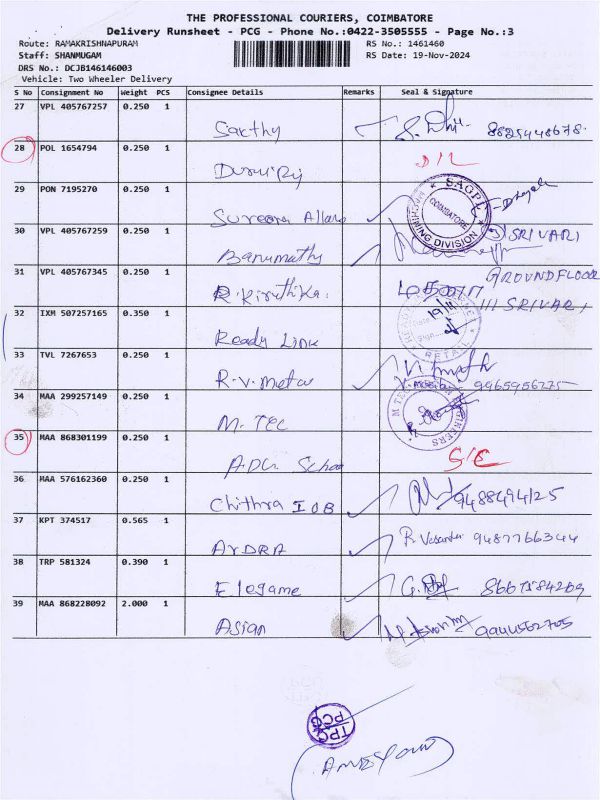 THE PROFESSIONAL COURIERS, COIMBATORE
Delivery Runsheet - PCG - Phone No.:0422-3505555 - Page No.:3
Route: RAMAKRISHNAPURAM RS No.: 1461460
Staff: SHANMUGAM RS Date: 19-Nov-2024
DRS No.: DCJB146146003
Vehicle: Two Wheeler Delivery
S No Consignment No Weight PCS Consignee Details Remarks Seal & Signature
27 VPL 405767257 0.250 1 Sakthy
28 POL 1654794 0.250 1 D/L
29 PON 7195270 0.250 1 SAGPL COIMBATORE DIVISION
30 VPL 405767259 0.250 1 Banumathy SRIVARI
31 VPL 405767345 0.250 1 R. Kiruthika. GROUND FLOOR
111 SRIVARI
32 IXM 507257165 0.350 1 Ready Link 19/11 RETAIL
33 TVL 7267653 0.250 1 R.V. Metal 9965956275
34 MAA 299257149 0.250 1 M. TEC
35 MAA 868301199 0.250 1
36 MAA 576162360 0.250 1 Chithra IOB 9488494125
37 KPT 374517 0.565 1 ARDRA 9487766344
38 TRP 581324 0.390 1 Elegame
39 MAA 868228092 2.000 1 Asian
TPC
PCG